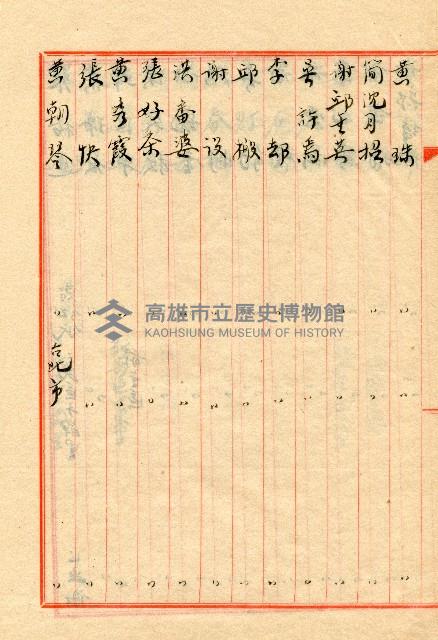 黄珠 〃 〃 〃
簡沈月招 〃 〃 〃
謝邱玉英 〃 〃 〃
吳許為 〃 〃 〃
李却 〃 〃 〃
邱搬 〃 〃 〃
謝設 〃 〃 〃
洪番婆 〃 〃 〃
張好条 〃 〃 〃
黄秀霞 〃 〃 〃
張快 〃 〃 〃
黄朝琴 〃 市 〃
高雄市立歷史博物館
KAOHSIUNG MUSEUM OF HISTORY